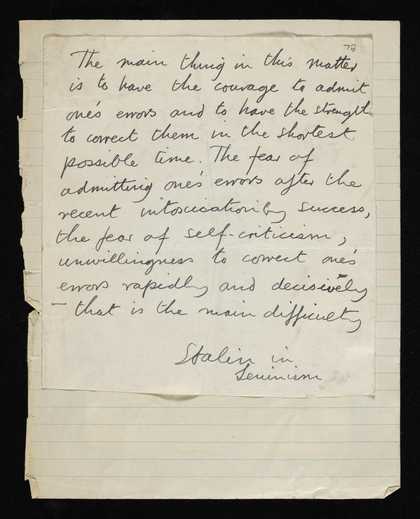 78
The main thing in this matter
is to have the courage to admit
one's errors and to have the strength
to correct them in the shortest
possible time. The fear of
admitting one's errors after the
recent intoxication by success,
the fear of self-criticism,
unwillingness to correct one's
errors rapidly and decisively
— that is the main difficulty
Stalin in
Leninism